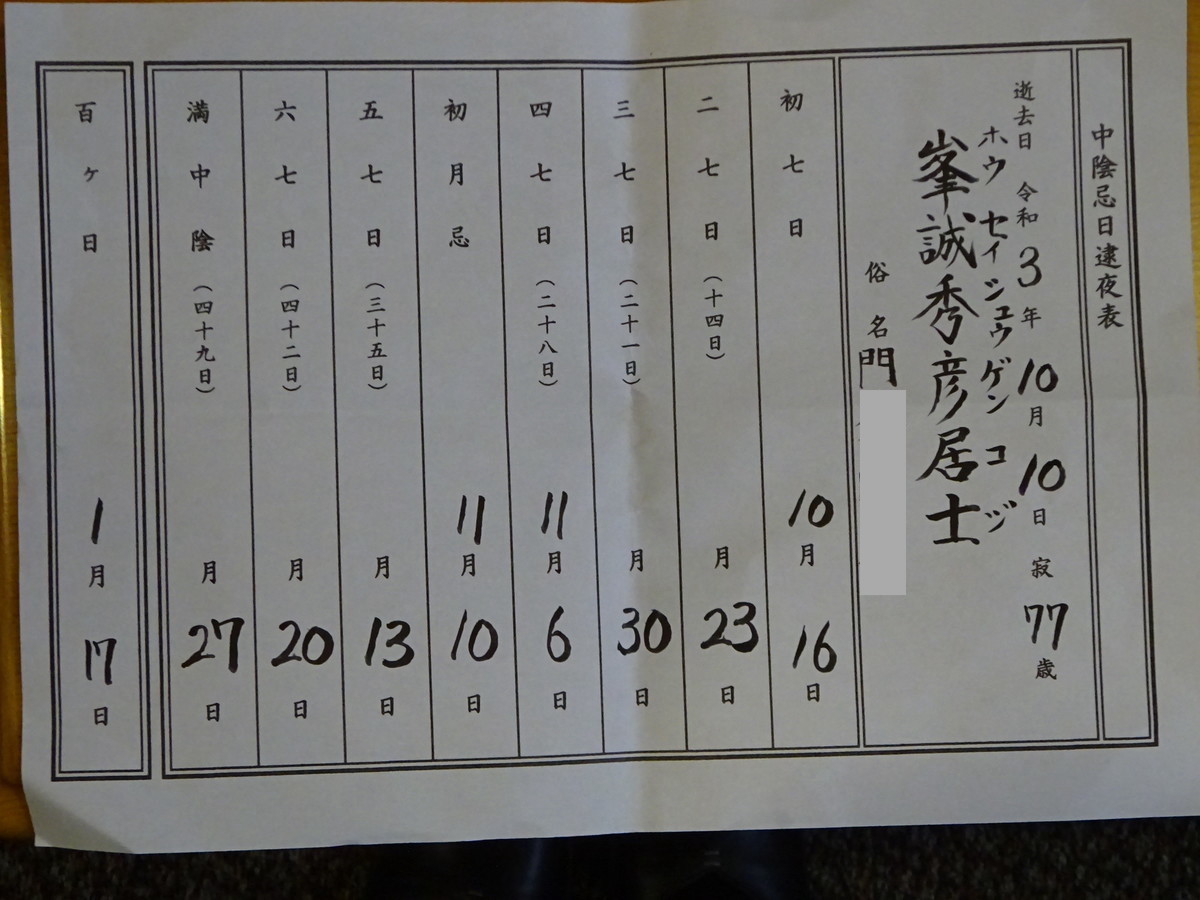 中陰忌日逮夜表
逝去日 令和3年10月10日 寂 77歳
ホウセイシュウゲンコジ
峯誠秀彦居士
俗名 門
初七日 10月16日
二七日(十四日) 月23日
三七日(二十一日) 月30日
四七日(二十八日) 11月6日
初月忌 11月10日
五七日(三十五日) 月13日
六七日(四十二日) 月20日
満中陰(四十九日) 月27日
百ヶ日 1月17日